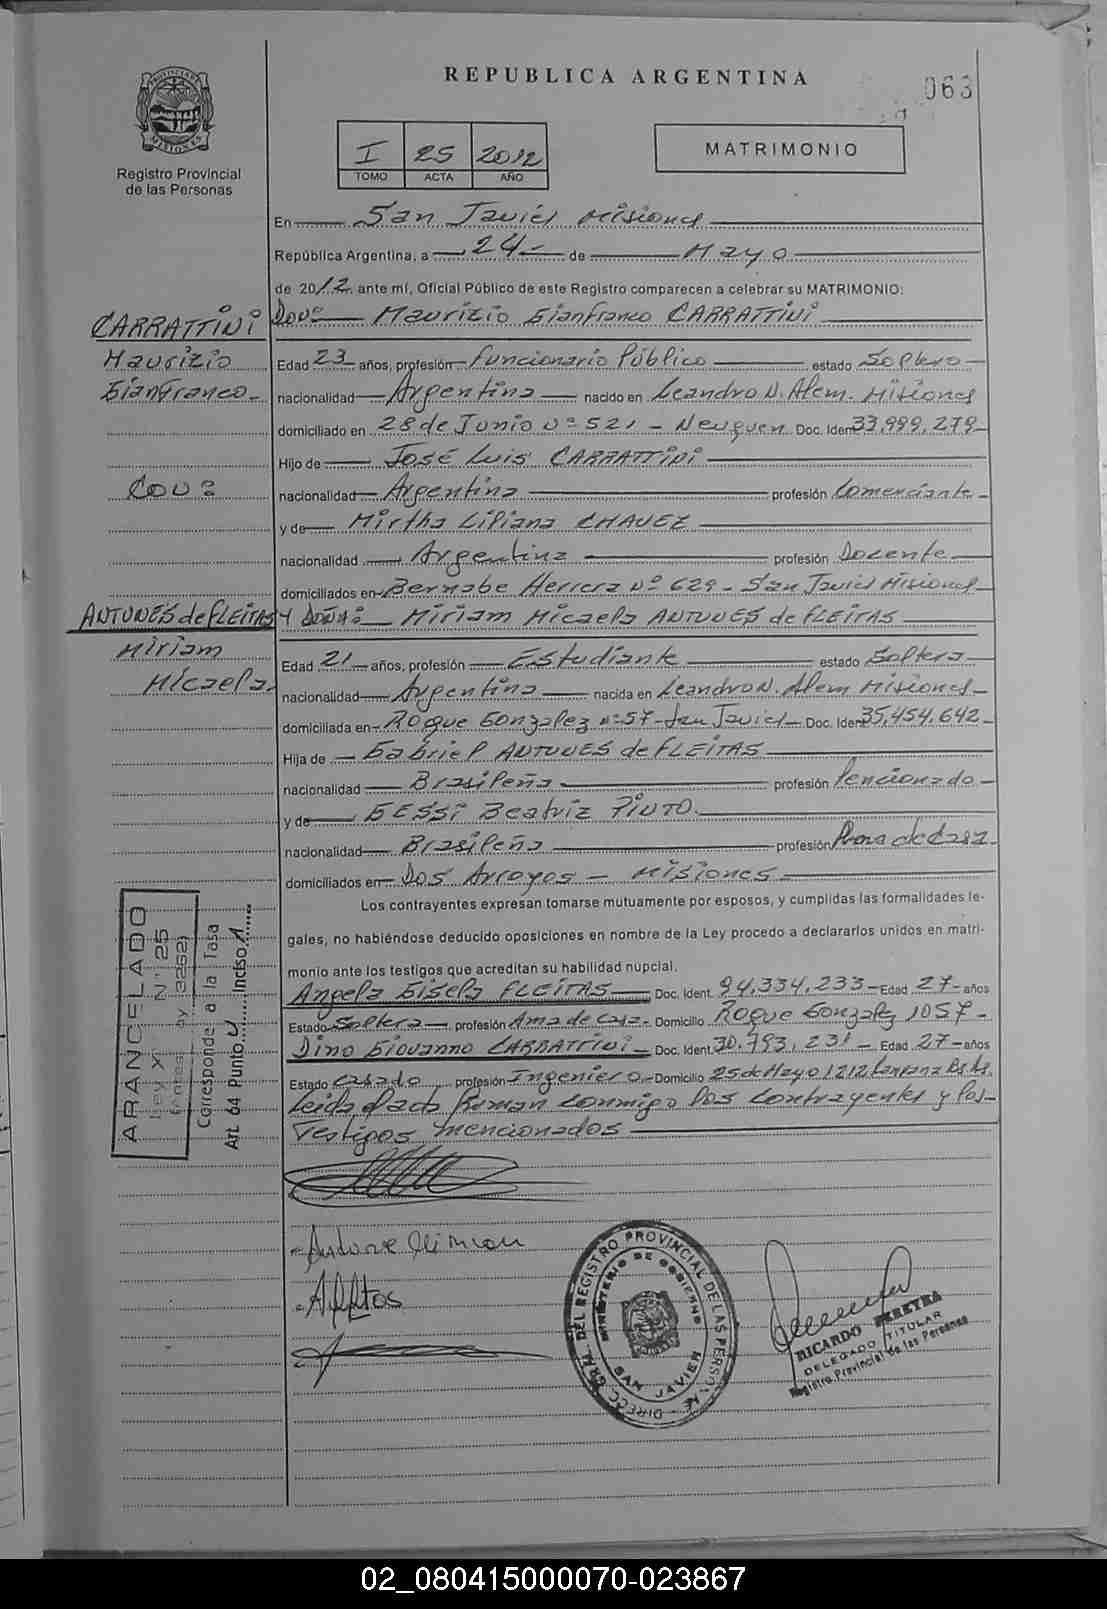 REPUBLICA ARGENTINA
063
PROVINCIA DE MISIONES
Registro Provincial
de las Personas
I 25 2012
TOMO ACTA AÑO
MATRIMONIO
En San Javier Misiones
República Argentina, a 24 de Mayo
de 2012 ante mí, Oficial Público de este Registro comparecen a celebrar su MATRIMONIO:
CARRATTINI
Maurizio
Gianfranco
Con:
ANTUNES de FLEITAS
Miriam
Micaela
Don: Maurizio Gianfranco CARRATTINI
Edad 23 años, profesión Funcionario Público estado Soltero
nacionalidad Argentina nacido en Leandro N. Alem Misiones
domiciliado en 28 de Junio Nº 521 - Neuquen Doc. Iden 33.999.279
Hijo de José Luis CARRATTINI
nacionalidad Argentina profesión Comerciante
y de Mirtha Liliana CHAVEZ
nacionalidad Argentina profesión Docente
domiciliados en Bernabe Herrera Nº 629 - San Javier Misiones
Y DOÑA: Miriam Micaela ANTUNES de FLEITAS
Edad 21 años, profesión Estudiante estado Soltera
nacionalidad Argentina nacida en Leandro N. Alem Misiones
domiciliada en Roque Gonzalez nº 57 - San Javier Doc. Iden 35.454.642
Hija de Gabriel ANTUNES de FLEITAS
nacionalidad Brasileña profesión Pencionado
y de GESSI Beatriz PINTO
nacionalidad Brasileña profesión Ama de Casa
domiciliados en Dos Arroyos - Misiones
Los contrayentes expresan tomarse mutuamente por esposos, y cumplidas las formalidades le-
gales, no habiéndose deducido oposiciones en nombre de la Ley procedo a declararlos unidos en matri-
monio ante los testigos que acreditan su habilidad nupcial.
Angela Gisela FLEITAS Doc. Ident. 94.334.233 Edad 27 años
Estado Soltera profesión Ama de casa Domicilio Roque Gonzalez 1057
Dino Giovanno CARRATTINI Doc. Ident. 30.793.231 Edad 27 años
Estado Casado profesión Ingeniero Domicilio 25 de Mayo 1212 Bs As.
Leida el acta firman conmigo los contrayentes y los
Testigos mencionados
ARANCELADO
Ley X Nº 25
(antes Ley 3262)
Corresponde a la Tasa
Art. 64 Punto 4 Inciso A
DIREC. GRAL. DEL REGISTRO PROVINCIAL DE LAS PERSONAS
MINISTERIO DE GOBIERNO
SAN JAVIER
RICARDO PEREYRA
DELEGADO TITULAR
Registro Provincial de las Personas
02_080415000070-023867